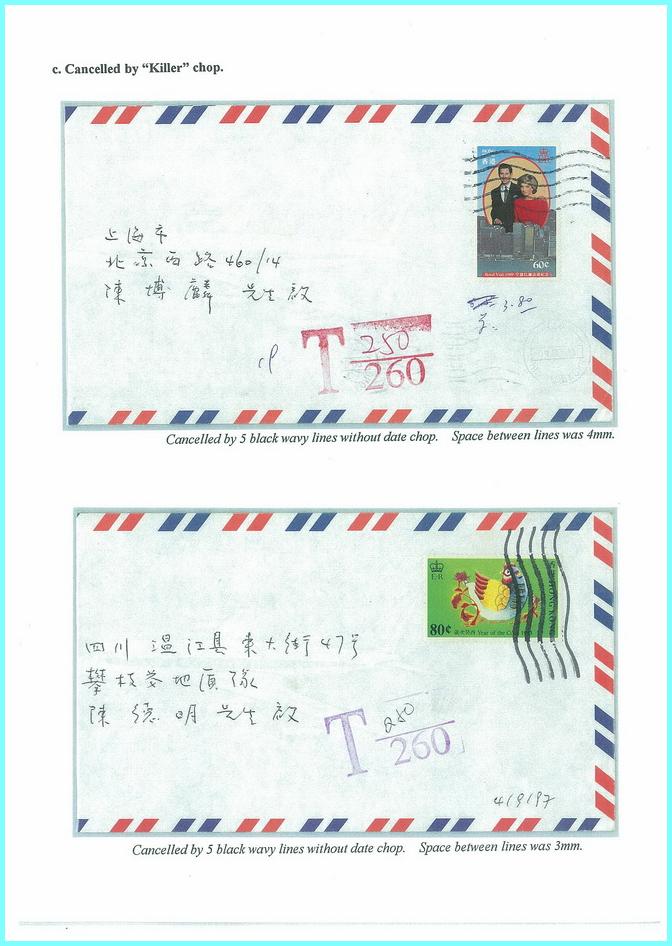 c. Cancelled by “Killer” chop.
香港
60¢
Royal Visit 1989
上海市
北京西路460/14
陳博麟 先生 啟
3.80
T 250
260
Cancelled by 5 black wavy lines without date chop. Space between lines was 4mm.
E R
HONG KONG
80¢
Year of the
四川 溫江县東大街47号
攀枝花地質隊
陳德明先生 啟
T 250
260
4/9/97
Cancelled by 5 black wavy lines without date chop. Space between lines was 3mm.